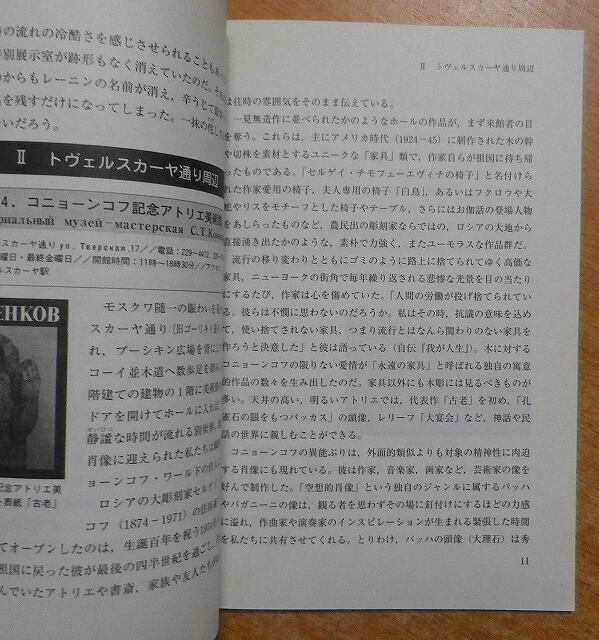 の流れの冷酷さを感じさせられることもあ
別展示室が跡形もなく消えていたのだ。
からもレーニンの名前が消え，辛うじて
を残すだけになってしまった。一抹の
いだろう。
Ⅱ トヴェルスカーヤ通り周辺
4．コニョーンコフ記念アトリエ美術館
риальный музей－мастерская С.Т.Коне
スカーヤ通り ул. Тверская,17／／電話：229－4472，
曜日・最終金曜日／／開館時間：11時～18時30分／／アクセ
ルスカヤ駅
ЕНКОВ
念アトリエ美
表紙「古老」
モスクワ随一の賑わいを
スカーヤ通り（旧ゴーリキイ通り
れ，プーシキン広場を背に
コーイ並木道へ数歩足を
階建ての建物の1階に美術
ドアを開けてホールに入れ
静謐な時間が流れる別世界
せいひつ
肖像に迎えられた私たちは
ョーンコフ・ワールドの住
ロシアの大彫刻家セルゲ
コフ（1874－1971）の住居
てオープンしたのは，生誕百年を祝う197
祖国に戻った彼が最後の四半世紀を過ごし，
んでいたアトリエや書斎，家族や友人たち
Ⅱ トヴェルスカーヤ通り周辺
は往時の雰囲気をそのまま伝えている。
一見無造作に並べられたかのようなホールの作品が，まず来館者の目
を奪う。これらは，主にアメリカ時代（1924－45）に制作された木の幹
や切株を素材としたユニークな「家具」類で，作家自らが祖国に持ち帰
ったものである。「セルゲイ・チモフェーエヴィチの椅子」と名付けら
れた作家愛用の椅子，夫人専用の椅子「白鳥」，あるいはフクロウや大
蛇やリスをモチーフとした椅子やテーブル，さらにはお伽話の登場人物
をあしらったものなど，農民出の彫刻家ならではの，ロシアの大地から
直接湧き出たかのような，素朴で力強く，またユーモラスな作品群だ。
流行の移り変わりとともにゴミのように路上に捨てられてゆく高価な
家具，ニューヨークの街角で毎年繰り返される悲惨な光景を目の当たり
にするたび，作家は心を傷めていた。「人間の労働が投げ捨てられてい
る。彼らは不憫に思わないのだろうか。私はその時，抗議の意味を込め
て，使い捨てされない家具，つまり流行とはなんら関わりのない家具を
作ろうと決意した」と彼は語っている（自伝『我が人生』）。木に対する
コニョーンコフの限りない愛情が「永遠の家具」と呼ばれる独自の寓意
的作品の数々を生み出したのだ。家具以外にも木彫には見るべきものが
多い。天井の高い，明るいアトリエでは，代表作「古老」を初め，「孔
雀石の眼をもつバッカス」の頭像，レリーフ「大宴会」など，神話や民
話の世界に親しむことができる。
コニョーンコフの異能ぶりは，外面的類似よりも対象の精神性に肉迫
する肖像にも現れている。彼は作家，音楽家，画家など，芸術家の像を
好んで制作した。「空想的肖像」という独自のジャンルに属するバッハ
やパガニーニの像は，観る者を思わずその場に釘付けにするほどの力感
に溢れ，作曲家や演奏家のインスピレーションが生まれる緊張した時間
を私たちに共有させてくれる。とりわけ，バッハの頭像（大理石）は秀
11